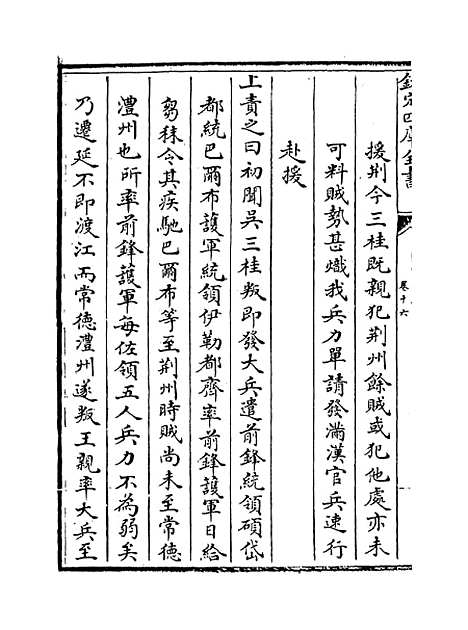 欽定四庫全書
卷十六
援荆今三桂既親犯荆州餘賊或犯他處亦未
可料賊勢甚熾我兵力單請發滿漢官兵速行
赴援
上責之曰初聞吳三桂叛即發大兵遣前鋒統領碩岱
都統巴爾布護軍統領伊勒都齊率前鋒護軍日給
芻秣令其疾馳巴爾布等至荆州時賊尚未至常德
澧州也所率前鋒護軍每佐領五人兵力不為弱矣
乃遷延不即渡江而常德澧州遂叛王親率大兵至